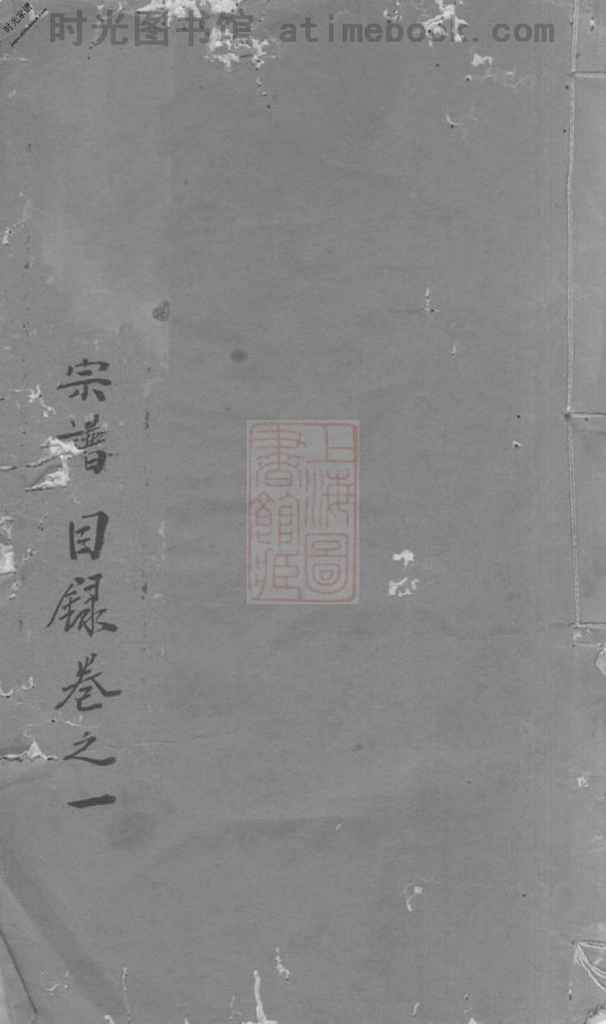 时光图书馆 atimebook.com
上海圖
書館庄
宗譜目錄卷之一